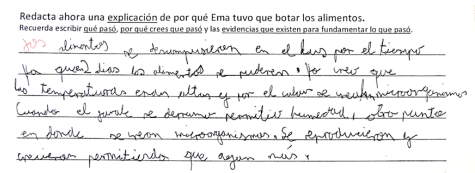 Redacta ahora una explicación de por qué Ema tuvo que botar los alimentos.
Recuerda escribir qué pasó, por qué crees que pasó y las evidencias que existen para fundamentar lo que pasó.
los alimentos se descompusieron en el bus por el tiempo
Ya que en 2 dias los alimentos se pudren. Yo creo que
las temperaturas eran altas y por el calor se crean microorganismos
Cuando el jurale se derramo permitio humedad, otro punto
en donde se creon microorganismos. Se reproducieron y
crecieron permitiendo que agan más.